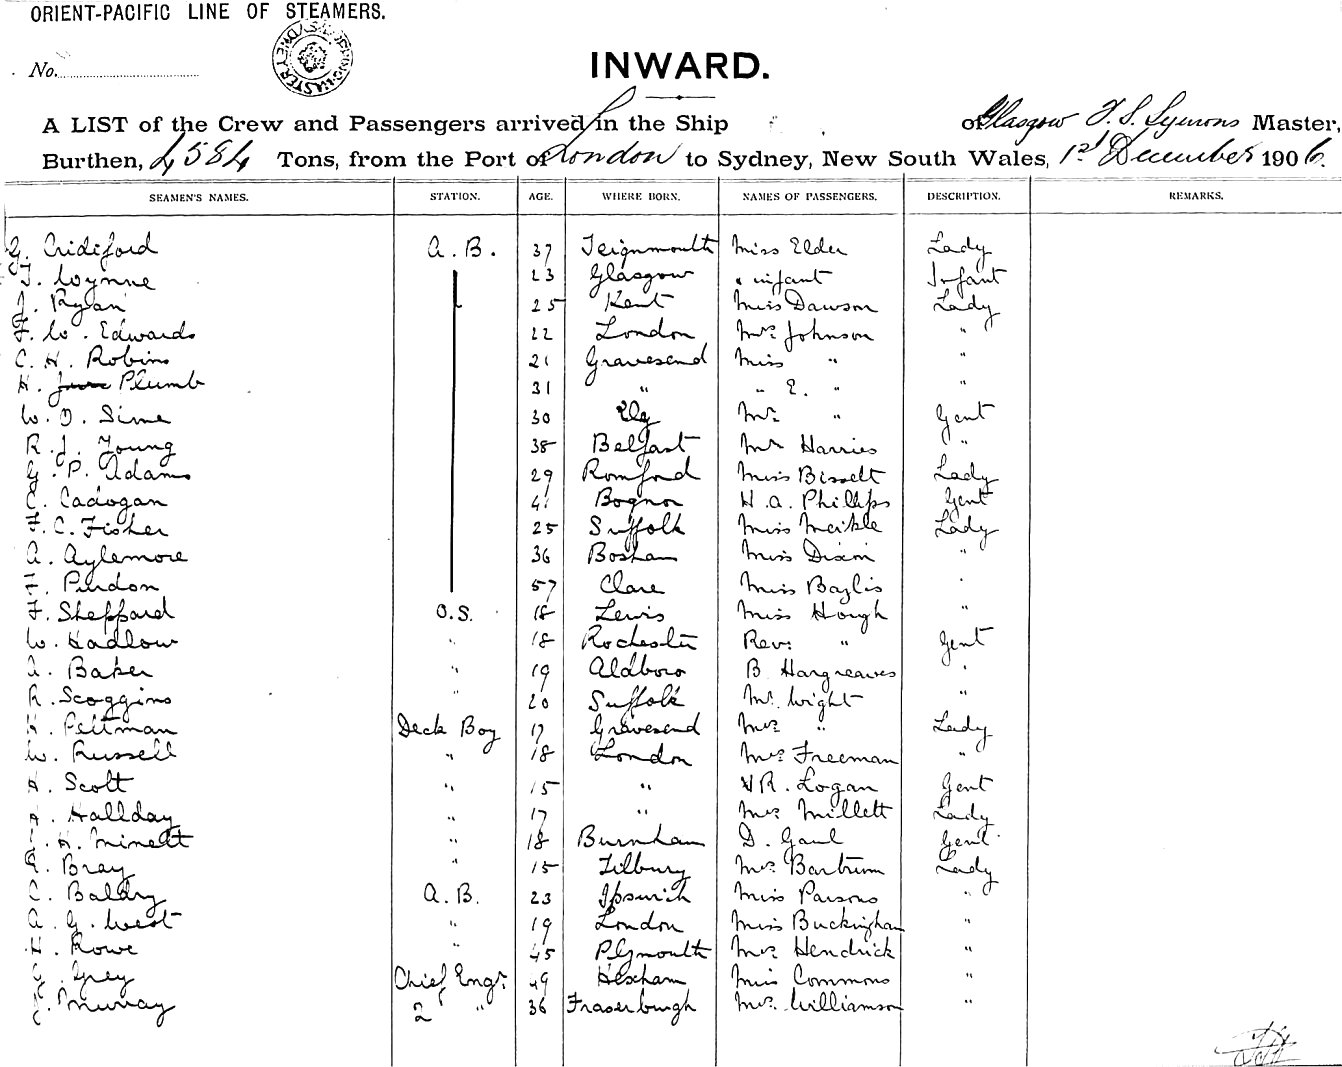 ORIENT-PACIFIC LINE OF STEAMERS.
No.
INWARD.
A LIST of the Crew and Passengers arrived in the Ship of Glasgow T. S. Symons Master,
Burthen, 4584 Tons, from the Port of London to Sydney, New South Wales, 1st December 1906.
SEAMEN'S NAMES. STATION. AGE. WHERE BORN. NAMES OF PASSENGERS. DESCRIPTION. REMARKS.
G. Cridiford A.B. 37 Teignmouth Miss Elder Lady
T. Wynne 23 Glasgow " infant Infant
J. Ryan 25 Kent Miss Dawson Lady
F. W. Edwards 22 London Mrs Johnson "
C. H. Robins 21 Gravesend Miss " "
H. Plumb 31 " " E. " "
W. O. Sime 30 Mr. " Gent
R. J. Young 38 Belfast Mr Harries "
G. P. Adams 29 Romford Miss Bissett Lady
C. Cadogan 41 Bognor H. A. Phillips Gent
F. C. Fisher 25 Suffolk Miss Meikle Lady
A. Aylemore 36 Bosham Miss Dixon "
F. Purdon 57 Clare Miss Baylis "
F. Sheppard O.S. 18 Lewis Miss Hough "
W. Hadlow " 18 Rochester Rev. " Gent
A. Baker " 19 Aldboro B Hargreaves "
R. Scoggins " 20 Suffolk Mr. Wright "
H. Peltman Deck Boy 17 Gravesend Mrs " Lady
W. Russell " 18 London Mrs Freeman "
H. Scott " 15 " R. Logan Gent
A. Hallday " 17 " Mrs Millett Lady
H. Minett " 18 Burnham D. Gaul Gent
R. Bray " 15 Tilbury Mrs Bartrum Lady
C. Baldry A.B. 23 Ipswich Miss Parsons "
A. G. West " 19 London Miss Buckingham "
H. Rowe " 45 Plymouth Mrs Hendrick "
G. Grey Chief Engr 49 Hexham Miss Commons "
J. Murray 2 " 36 Fraserburgh Mrs. Williamson "